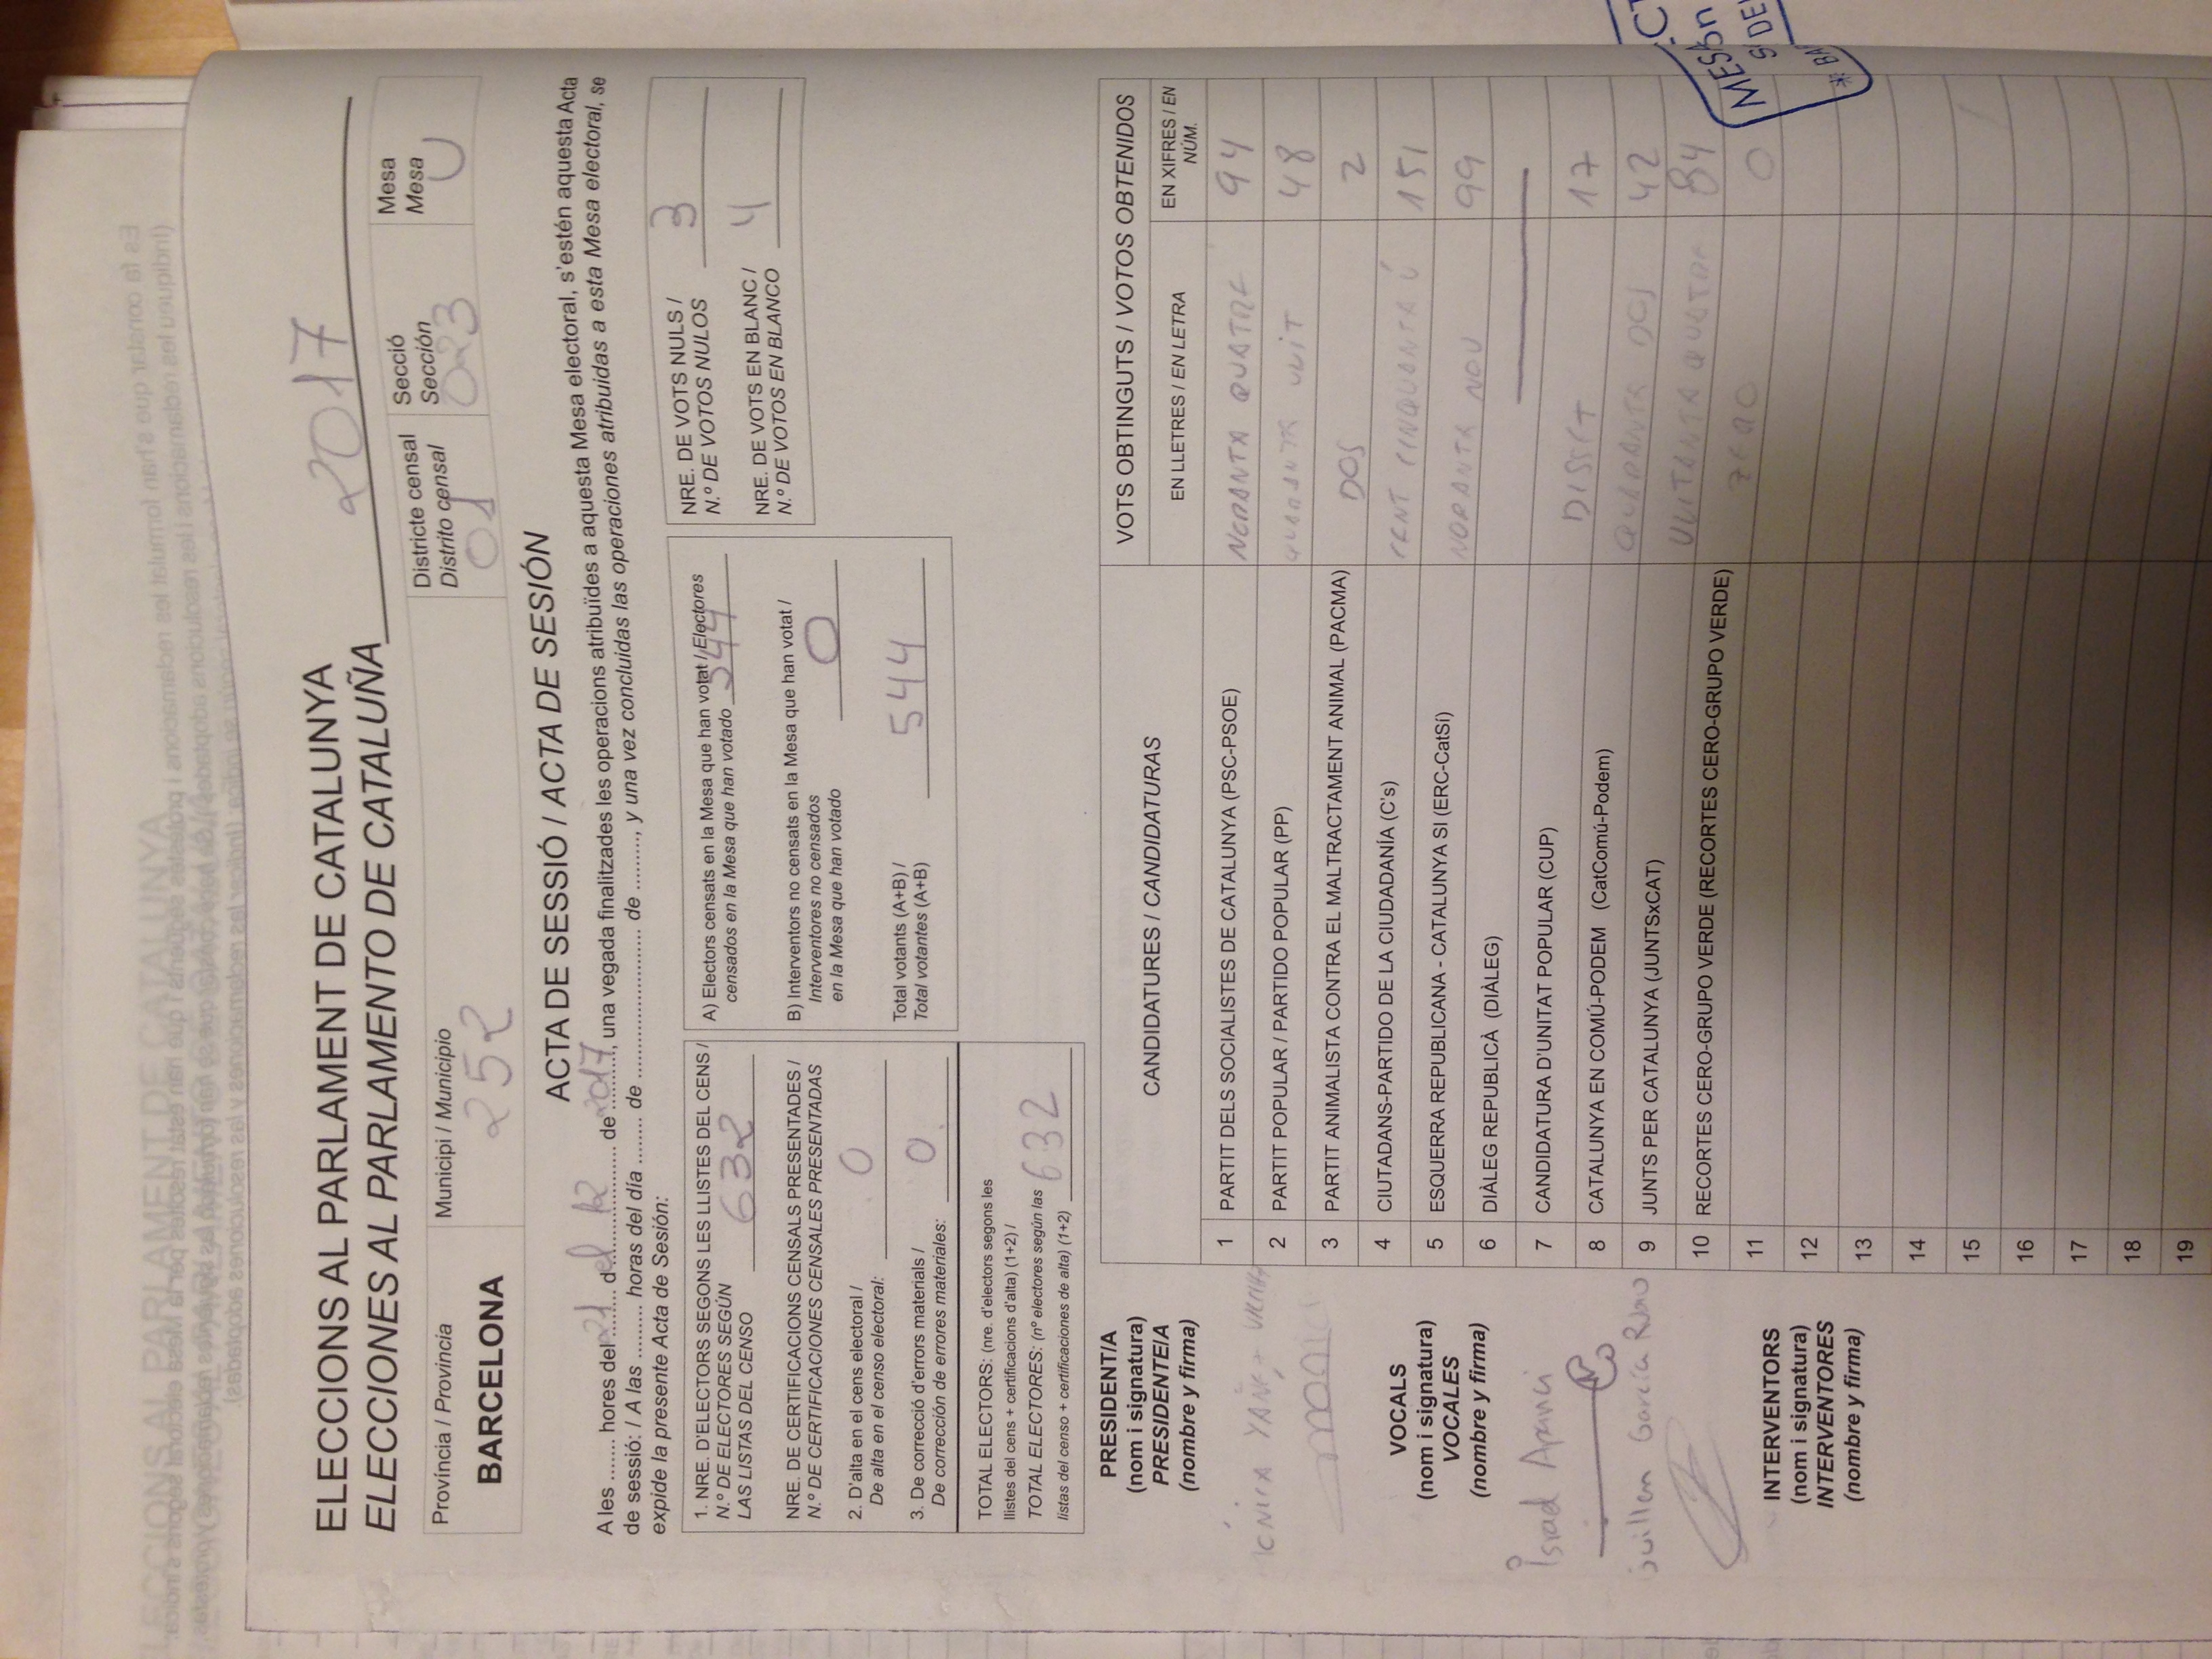 ELECCIONS AL PARLAMENT DE CATALUNYA
ELECCIONS AL PARLAMENT DE CATALUNYA
ELECCIONES AL PARLAMENTO DE CATALUÑA 2017
Província / Provincia
BARCELONA
Municipi / Municipio
252
Districte censal
Distrito censal
01
Secció
Sección
023
Mesa
Mesa
U
ACTA DE SESSIÓ / ACTA DE SESIÓN
A les ....... hores del 21 del 12 de 2017, una vegada finalitzades les operacions atribuïdes a aquesta Mesa electoral, s'estén aquesta Acta
de sessió: / A las ......... horas del día ........ de .......................... de ........., y una vez concluidas las operaciones atribuidas a esta Mesa electoral, se
expide la presente Acta de Sesión:
1. NRE. D'ELECTORS SEGONS LES LLISTES DEL CENS /
N.º DE ELECTORES SEGÚN
LAS LISTAS DEL CENSO 632
NRE. DE CERTIFICACIONS CENSALS PRESENTADES /
N.º DE CERTIFICACIONES CENSALES PRESENTADAS
2. D'alta en el cens electoral /
De alta en el censo electoral: 0
3. De correcció d'errors materials /
De corrección de errores materiales: 0
TOTAL ELECTORS: (nre. d'electors segons les
llistes del cens + certificacions d'alta) (1+2) /
TOTAL ELECTORES: (nº electores según las
listas del censo + certificaciones de alta) (1+2) 632
A) Electors censats en la Mesa que han votat / Electores
censados en la Mesa que han votado 544
B) Interventors no censats en la Mesa que han votat /
Interventores no censados
en la Mesa que han votado 0
Total votants (A+B) /
Total votantes (A+B) 544
NRE. DE VOTS NULS /
N.º DE VOTOS NULOS 3
NRE. DE VOTS EN BLANC /
N.º DE VOTOS EN BLANCO 4
PRESIDENT/A
(nom i signatura)
PRESIDENTE/A
(nombre y firma)
VOCALS
(nom i signatura)
VOCALES
(nombre y firma)
Israel
Guillem García Rubio
INTERVENTORS
(nom i signatura)
INTERVENTORES
(nombre y firma)
CANDIDATURES / CANDIDATURAS
VOTS OBTINGUTS / VOTOS OBTENIDOS
EN LLETRES / EN LETRA
EN XIFRES / EN
NÚM.
1 PARTIT DELS SOCIALISTES DE CATALUNYA (PSC-PSOE) NORANTA QUATRE 94
2 PARTIT POPULAR / PARTIDO POPULAR (PP) QUARANTA VUIT 48
3 PARTIT ANIMALISTA CONTRA EL MALTRACTAMENT ANIMAL (PACMA) DOS 2
4 CIUTADANS-PARTIDO DE LA CIUDADANÍA (C's) CENT CINQUANTA Ú 151
5 ESQUERRA REPUBLICANA - CATALUNYA SI (ERC-CatSí) NORANTA NOU 99
6 DIÀLEG REPUBLICÀ (DIÀLEG)
7 CANDIDATURA D'UNITAT POPULAR (CUP) DISSET 17
8 CATALUNYA EN COMÚ-PODEM (CatComú-Podem) QUARANTA DOS 42
9 JUNTS PER CATALUNYA (JUNTSxCAT) VUITANTA QUATRE 84
10 RECORTES CERO-GRUPO VERDE (RECORTES CERO-GRUPO VERDE) ZERO 0
11
12
13
14
15
16
17
18
19
MESA